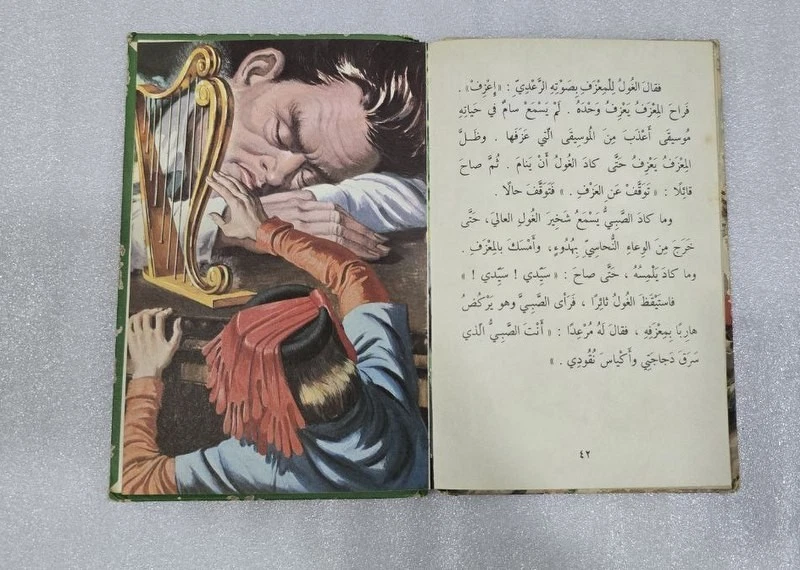 فقالَ الغُولُ لِلْمِعْزَفِ بِصَوْتِهِ الرَّعْدِيِّ : « إِعْزِفْ » .
فَراحَ المِعْزَفُ يَعْزِفُ وَحْدَهُ . لَمْ يَسْمَعْ سامٌ في حَياتِهِ
مُوسيقَى أَعْذَبَ مِنَ المُوسيقَى الَّتي عَزَفَها . وظَلَّ
المِعْزَفُ يَعْزِفُ حَتَّى كادَ الغُولُ أَنْ يَنامَ . ثُمَّ صاحَ
قائِلًا : « تَوَقَّفْ عَنِ العَزْفِ . » فَتَوَقَّفَ حالًا .
وما كادَ الصَّبِيُّ يَسْمَعُ شَخيرَ الغُولِ العالِيَ، حَتَّى
خَرَجَ مِنَ الوِعاءِ النُّحاسِيِّ بِهُدُوءٍ، وأَمْسَكَ بِالمِعْزَفِ .
وما كادَ يَلْمِسُهُ ، حَتَّى صاحَ : « سَيِّدي ! سَيِّدي ! »
فاستَيْقَظَ الغُولُ ثائِرًا ، فَرَأَى الصَّبِيَّ وهو يَرْكُضُ
هارِبًا بِمِعْزَفِهِ ، فقالَ لَهُ مُرْعِدًا : « أَنْتَ الصَّبِيُّ الَّذي
سَرَقَ دَجاجَتِي وأَكْياسَ نُقُودِي . »
٤٢